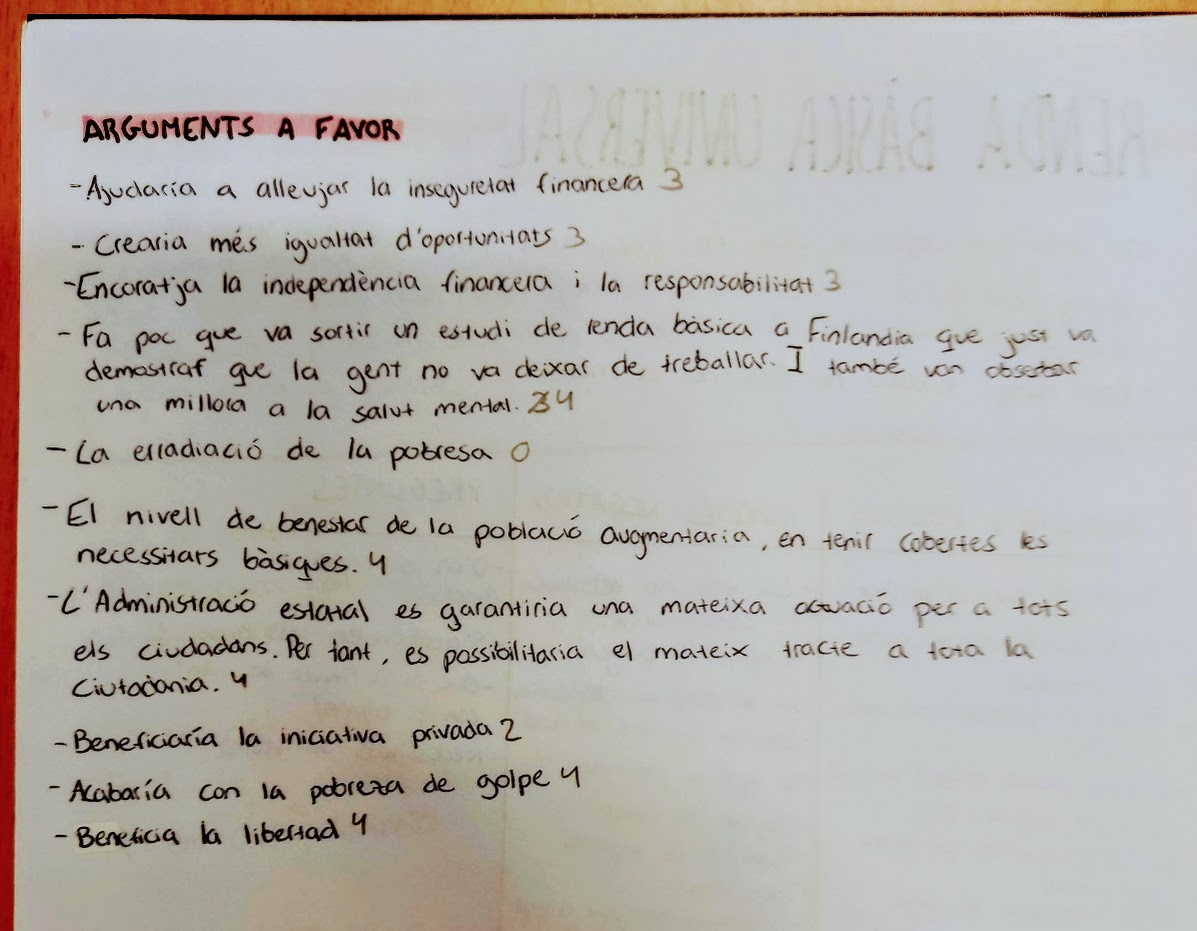 RENDA BÀSICA UNIVERSAL
ARGUMENTS A FAVOR
- Ajudaría a alleujar la inseguretat financera 3
- Crearia més igualtat d'oportunitats 3
- Encoratja la independència financera i la responsabilitat 3
- Fa poc que va sortir un estudi de renda bàsica a Finlandia que just va
demostraf que la gent no va deixar de treballar. I també van obserbar
una millora a la salut mental. 4
- La erradiació de la pobresa 0
- El nivell de benestar de la població augmentaria, en tenir cobertes les
necessitats bàsiques. 4
- L'Administració estatal es garantiria una mateixa actuació per a tots
els ciudadans. Per tant, es possibilitaria el mateix tracte a tota la
ciutadania. 4
- Beneficiaría la iniciativa privada 2
- Acabaría con la pobreza de golpe 4
- Beneficia la libertad 4